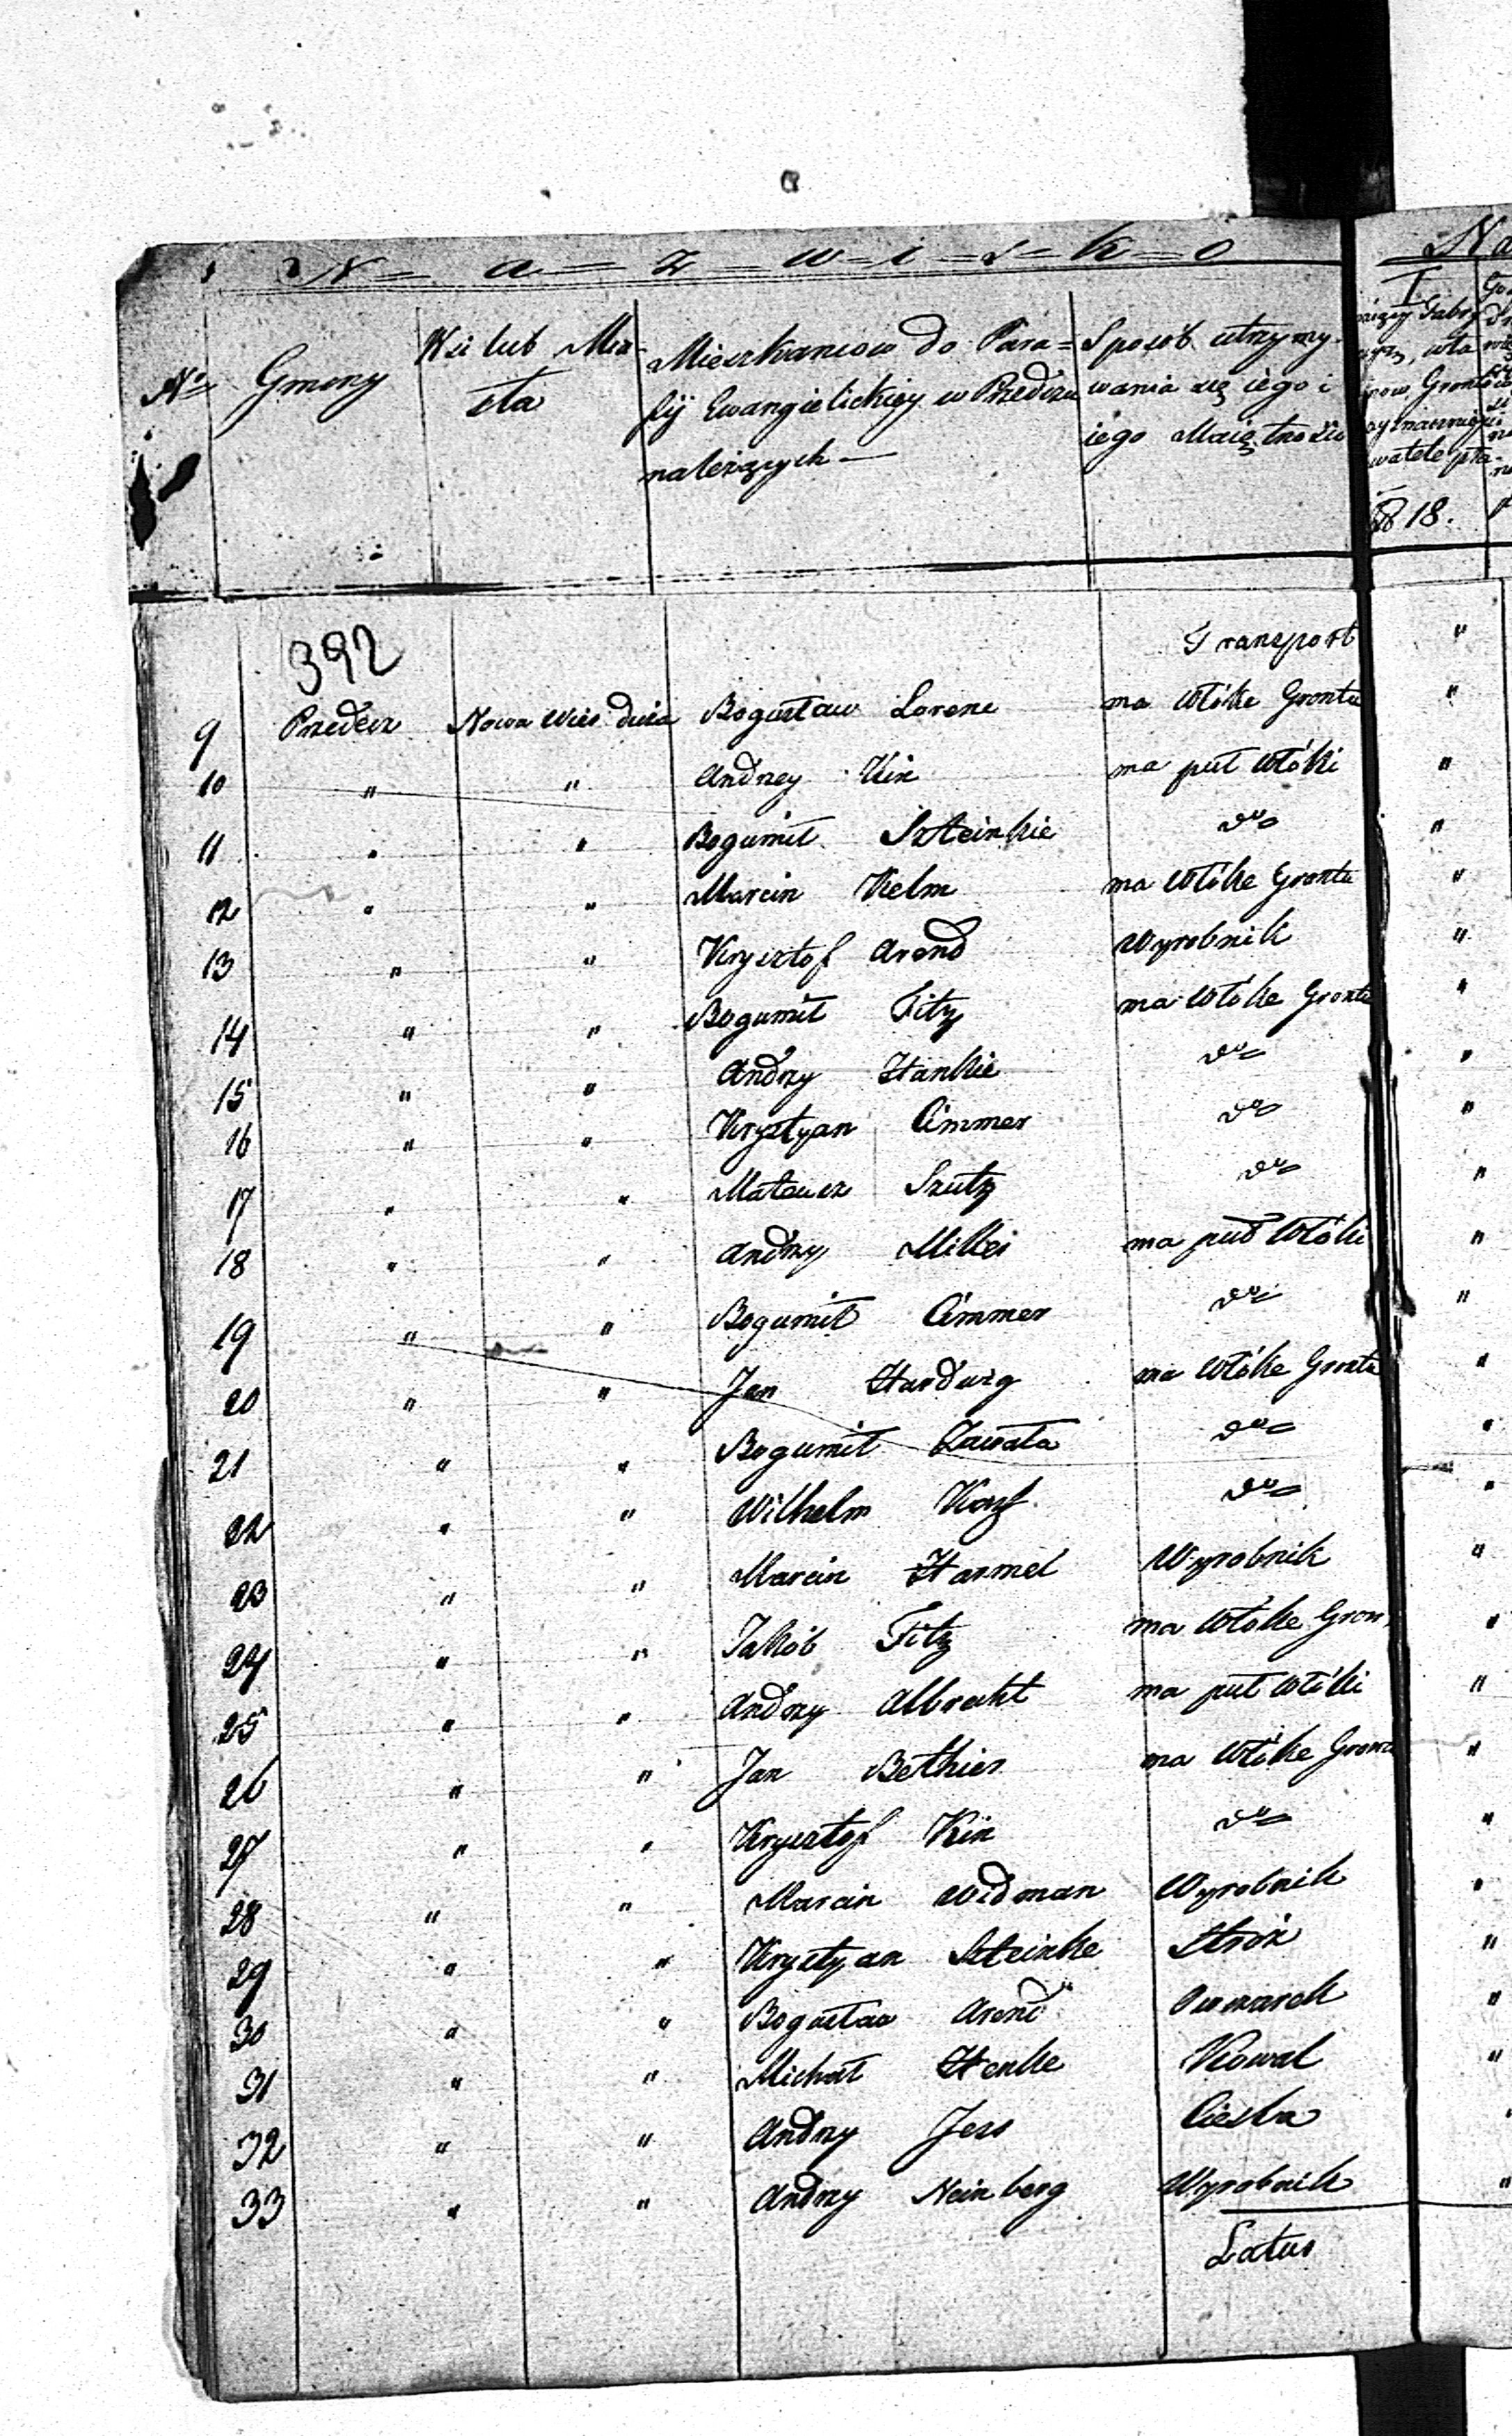 N = a = z = w = i = s = k = o
No Gminy Wsi lub Mia- Mieszkancow do Para= Sposób utrzymy-
sta fij Ewangielickiey w Przedczu wania się iego i
należących — iego Maiętności
18.
392
Transport "
9 Przedecz Nowa Wies duża Bogusław Lorenc ma włóke Grontu "
10 " " Andrzey Kin ma puł włóki "
11 " " Bogumił Szteinkie do "
12 " " Marcin Kelm ma włóke Grontu "
13 " " Krysztof Arend Wyrobnik "
14 " " Bogumił Fitz ma włóke Grontu "
15 " " Andrzy Hankie do "
16 " " Krystyan Cimmer do "
17 " " Mateusz Szulz do "
18 " " Andrzy Milkei ma puł włóki "
19 " " Bogumił Cimmer do "
20 " " Jan Hardwig ma włóke Grontu "
21 " " Bogumił Zawata do "
22 " " Wilhelm do "
23 " " Marcin Harmel Wyrobnik "
24 " " Jakób Fitz ma włóke Gron "
25 " " Andrzy Albrecht ma puł włóki "
26 " " Jan Bethier ma włóke Grontu "
27 " " Krysztof Kin do "
28 " " Marcin Widman Wyrobnik "
29 " " Krystyan Szteinke Stróż "
30 " " Bogusław Arend Owczarek "
31 " " Michał Henke Kowal "
32 " " Andrzy Jess Ciesla "
33 " " Andrzy Neinberg Wyrobnik "
Latus